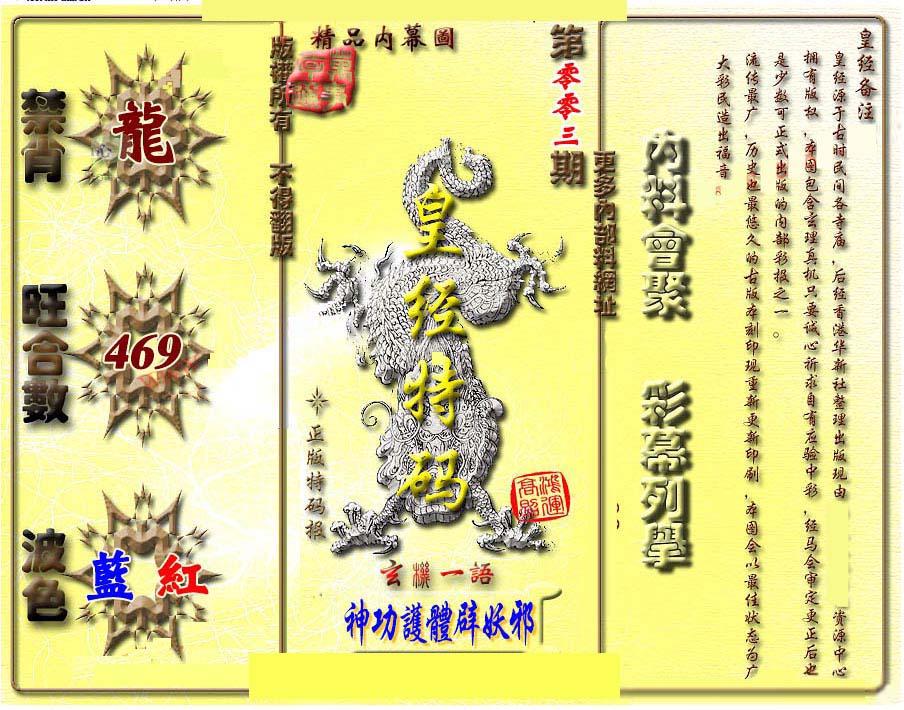 皇经备注
皇经源于古时民间各寺庙，后经香港华新社整理出版现由 资源中心
拥有版权，本图包含玄理真机只要诚心祈求自有应验中彩，经马会审定更正后也
是少数可正式出版的内部彩报之一。
流传最广，历史也最悠久的古版本刻印现重新更新印刷，本图会以最佳状态为广
大彩民造出福音
内料會聚
彩幕列舉
更多內部料網址
第零零三期
精品内幕圖
皇经特码
正版特码报
鴻運高照
玄機一語
神功護體辟妖邪
版權所有 不得翻版
禁肖
龍
旺合數
469
波色
藍 紅